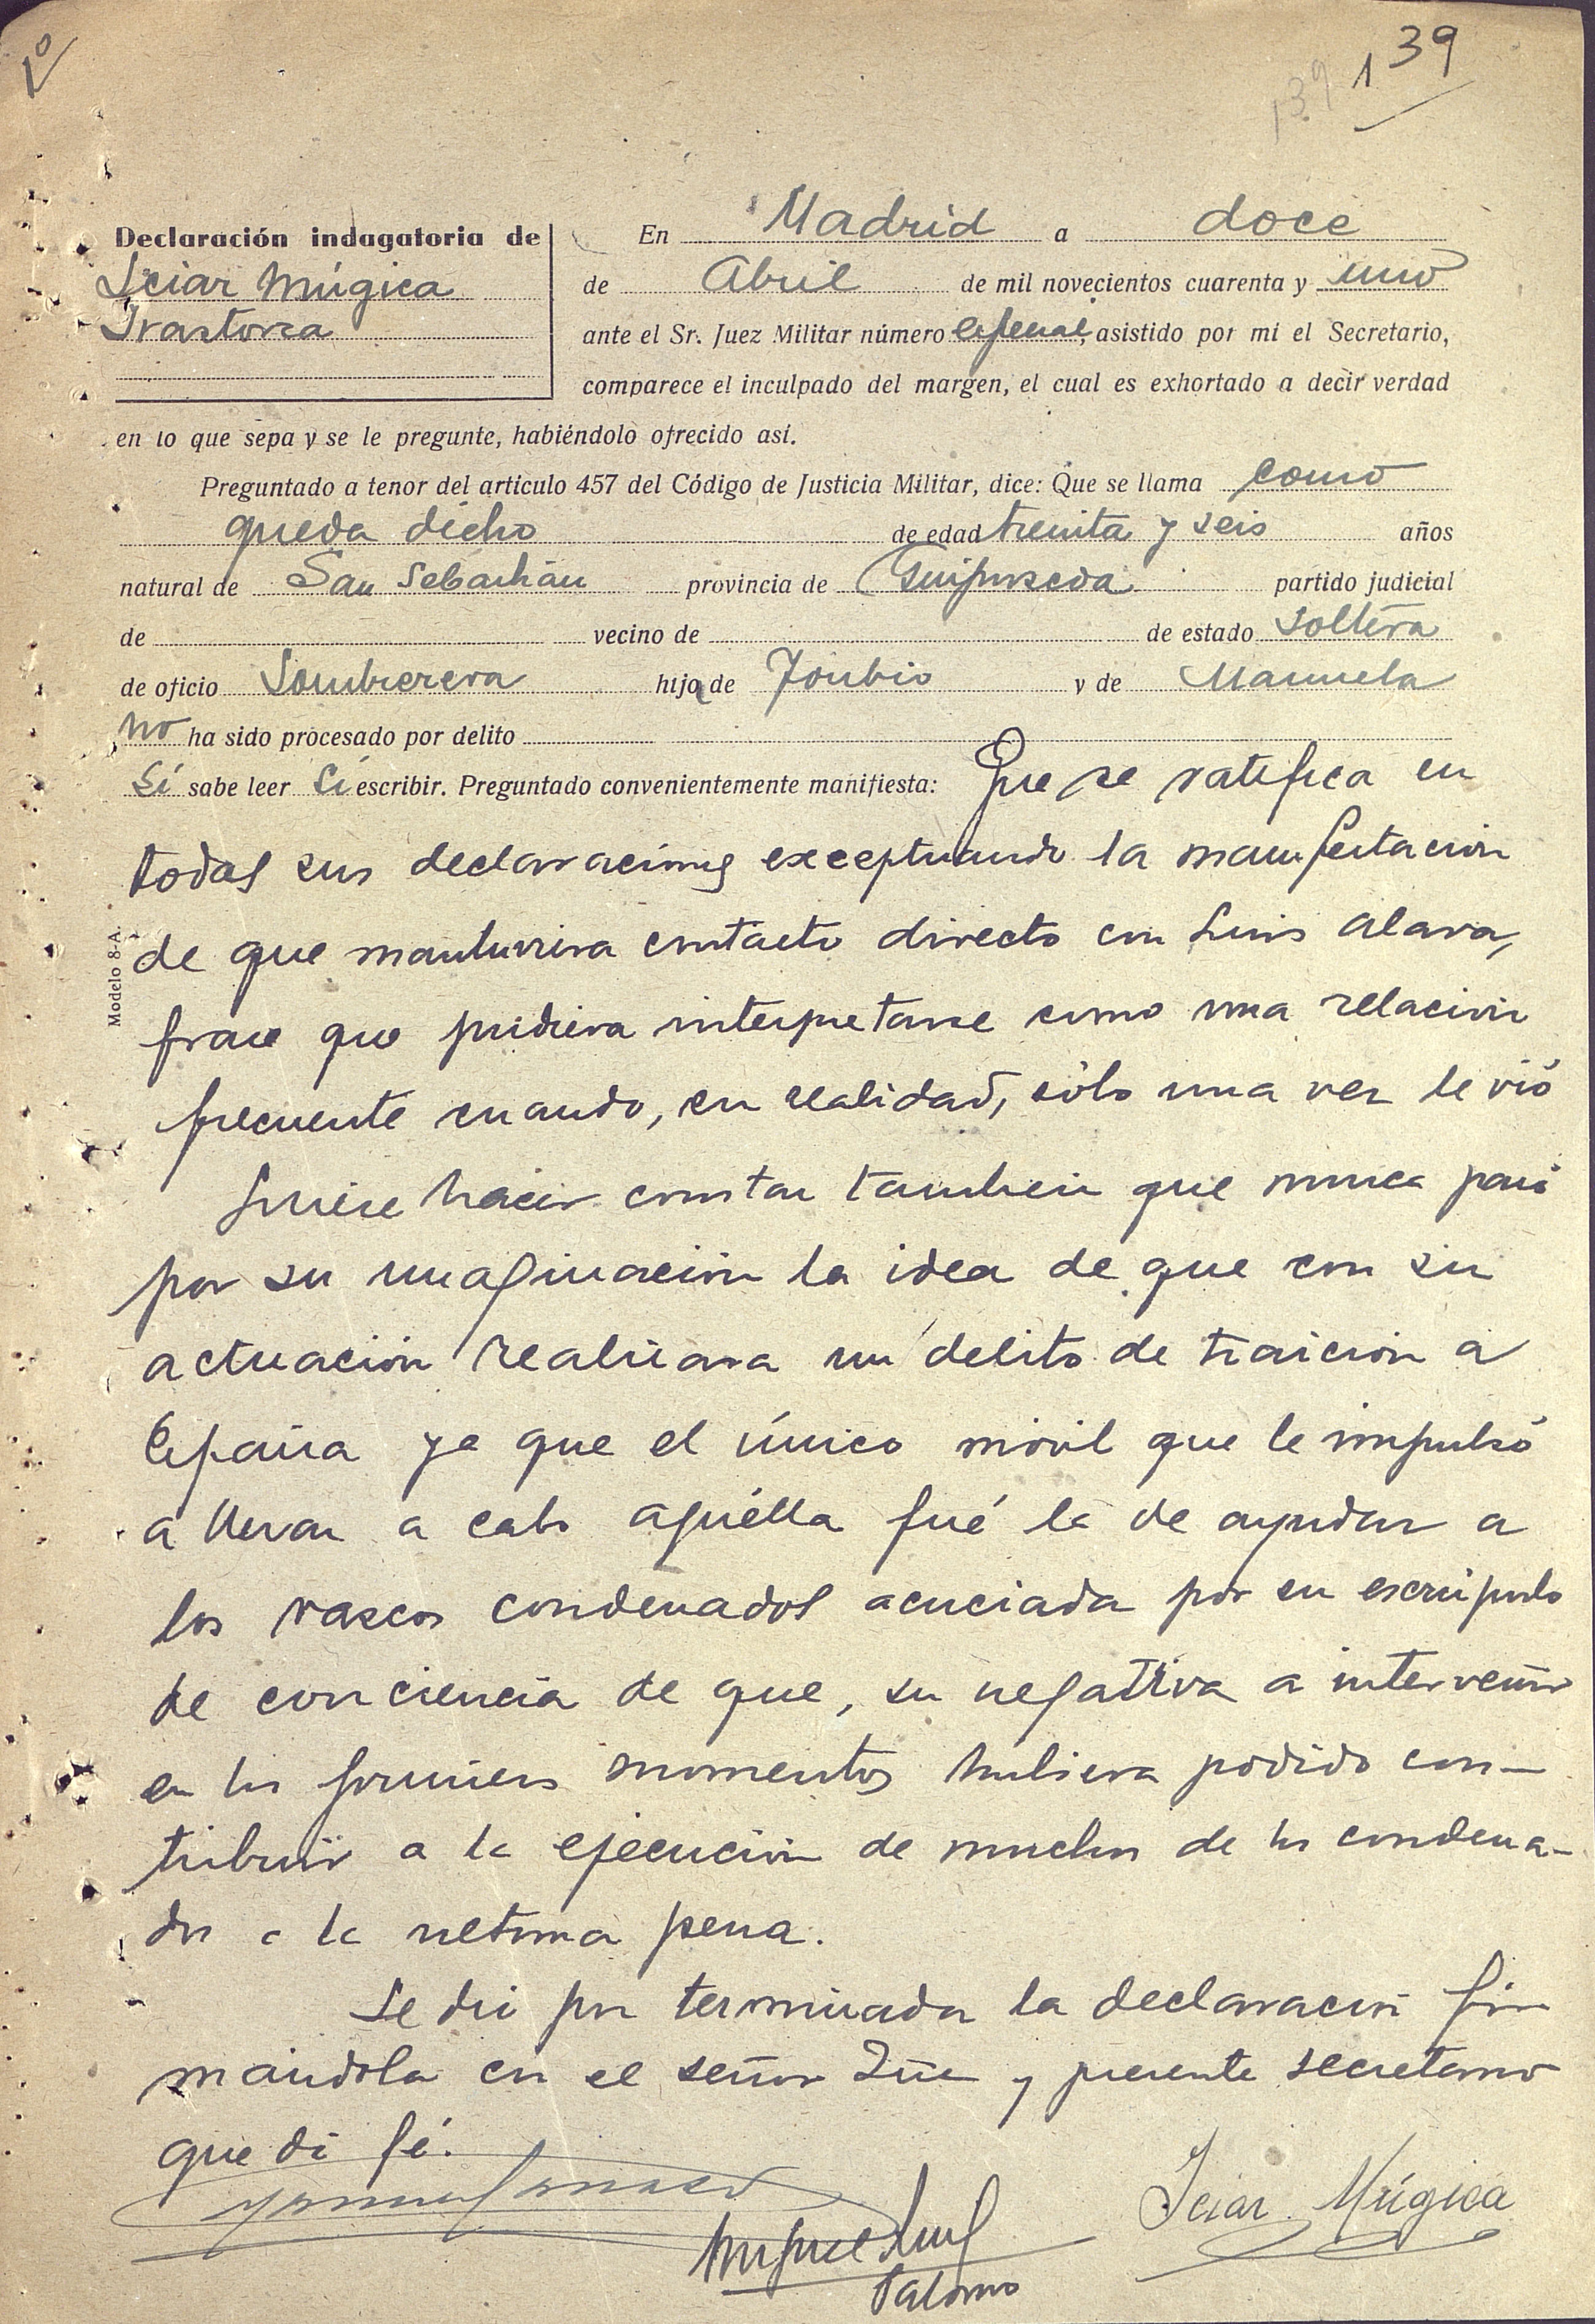 1º
139
139
Declaración indagatoria de
Iciar Múgica
Irastorza
En Madrid a doce
de Abril de mil novecientos cuarenta y uno
ante el Sr. Juez Militar número Especial, asistido por mi el Secretario,
comparece el inculpado del margen, el cual es exhortado a decir verdad
en lo que sepa y se le pregunte, habiéndolo ofrecido así.
Preguntado a tenor del artículo 457 del Código de Justicia Militar, dice: Que se llama como
queda dicho de edad treinta y seis años
natural de San Sebastián provincia de Guipuzcoa partido judicial
de vecino de de estado soltera
de oficio Sombrerera hija de Toribio y de Manuela
no ha sido procesado por delito
Sí sabe leer Sí escribir. Preguntado convenientemente manifiesta: Que se ratifica en
todas sus declaraciones exceptuando la manifestación
de que mantuviera contacto directo con Luis Alava,
frase que pudiera interpretarse como una relación
frecuente cuando, en realidad, sólo una vez le vió
Quiere hacer constar tambien que nunca pasó
por su imaginación la idea de que con su
actuación realizara un delito de traición a
España ya que el único móvil que le impulsó
a llevar a cabo aquélla fué la de ayudar a
los vascos condenados acuciada por su escrúpulo
de conciencia de que, su negativa a intervenir
en los primeros momentos hubiera podido con-
tribuir a la ejecución de muchos de los condena-
dos a la ultima pena.
Se dió por terminada la declaración fir
mándola con el señor Juez y presente secretario
que dá fé.
Miguel
Palomo
Iciar Múgica
Modelo 8-A.